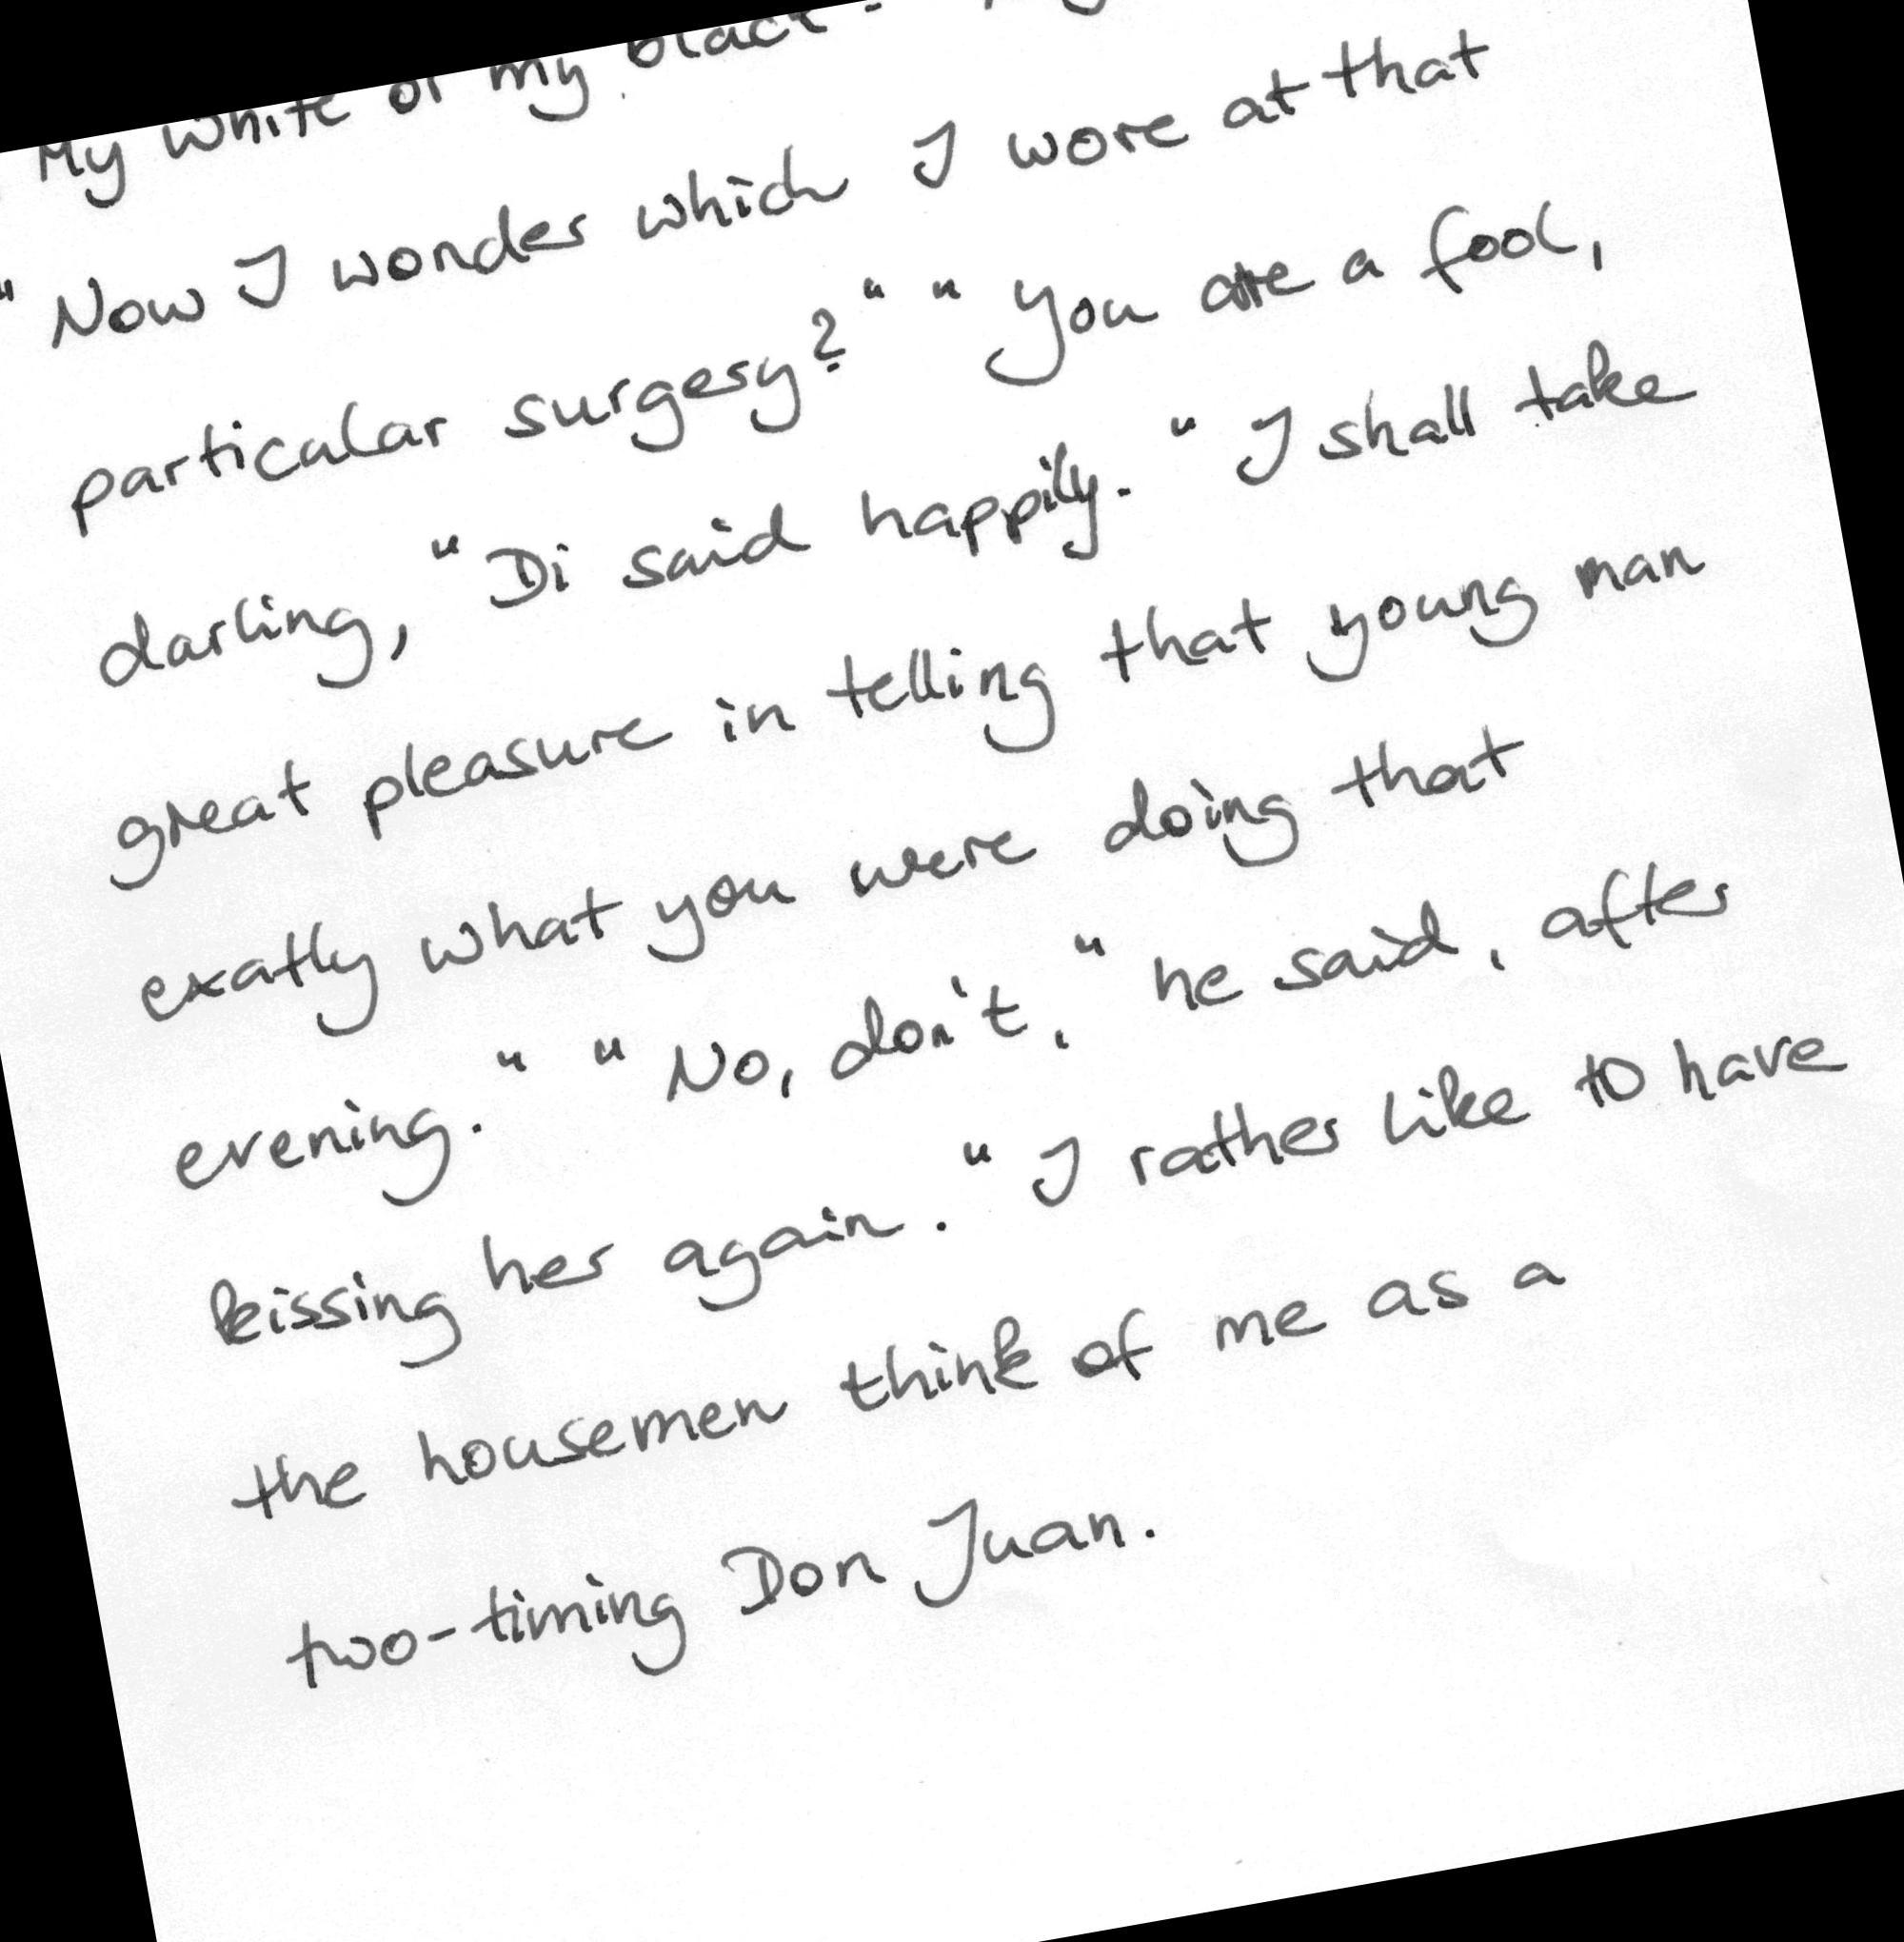 My white or my black
" Now I wonder which I wore at that
particular surgery?" " You are a fool,
darling, " Di said happily. " I shall take
great pleasure in telling that young man
exatly what you were doing that
evening. " " No, don't, " he said, after
kissing her again. " I rather like to have
the housemen think of me as a
two-timing Don Juan.